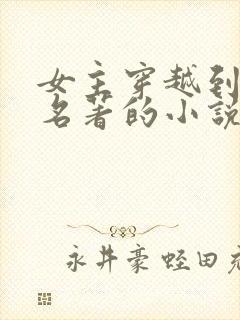 女主穿越到
名著的小說
永井豪 蛭田充